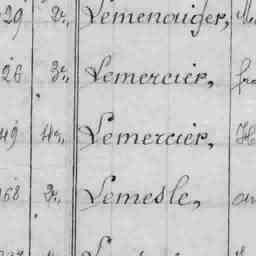 29 2e, Lemenaiger,
26 3e, Lemercier,
49 4e, Lemercier,
68 3e, Lemesle,